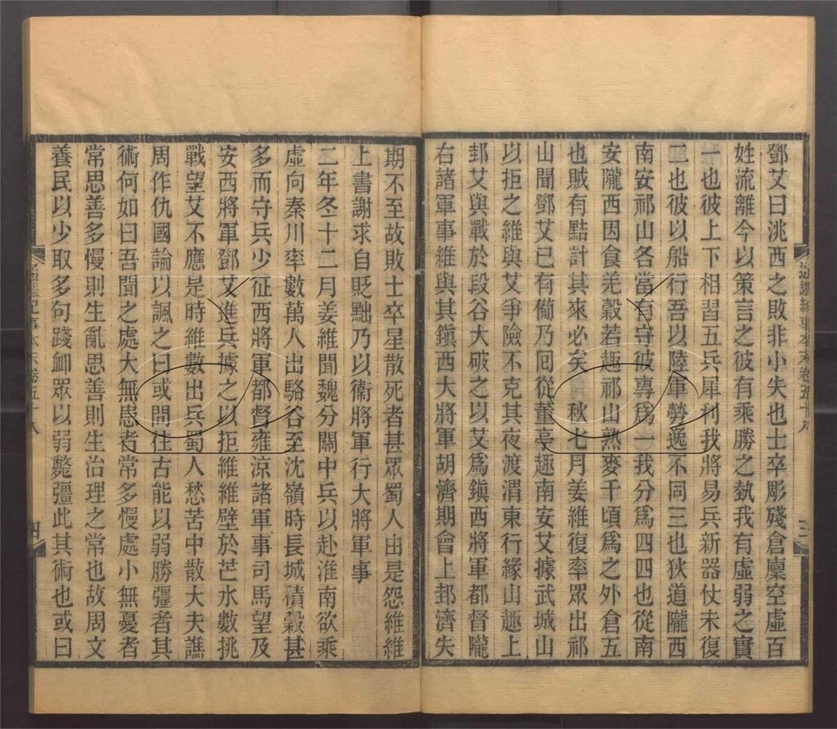 鄧艾曰洮西之敗非小失也士卒彫殘倉廩空虛百
姓流離今以策言之彼有乘勝之埶我有虛弱之實
一也彼上下相習五兵犀利我將易兵新器仗未復
二也彼以船行吾以陸軍勞逸不同三也狄道隴西
南安祁山各當有守彼專爲一我分爲四四也從南
安隴西因食羌穀若趣祁山熟麥千頃爲之外倉五
也賊有黠計其來必矣 秋七月姜維復率眾出祁
山聞鄧艾已有備乃回從董亭趣南安艾據武城山
以拒之維與艾爭險不克其夜渡渭東行緣山趣上
邽艾與戰於段谷大破之以艾爲鎭西將軍都督隴
右諸軍事維與其鎭西大將軍胡濟期會上邽濟失
期不至故敗士卒星散死者甚眾蜀人由是怨維維
上書謝求自貶黜乃以衞將軍行大將軍事
二年冬十二月姜維聞魏分關中兵以赴淮南欲乘
虛向秦川率數萬人出駱谷至沈嶺時長城積穀甚
多而守兵少征西將軍都督雍涼諸軍事司馬望及
安西將軍鄧艾進兵據之以拒維維壁於芒水數挑
戰望艾不應是時維數出兵蜀人愁苦中散大夫譙
周作仇國論以諷之曰或問往古能以弱勝彊者其
術何如曰吾聞之處大無患者常多慢處小無憂者
常思善多慢則生亂思善則生治理之常也故周文
養民以少取多句踐卹眾以弱斃彊此其術也或曰
通鑑紀事本末卷五十八